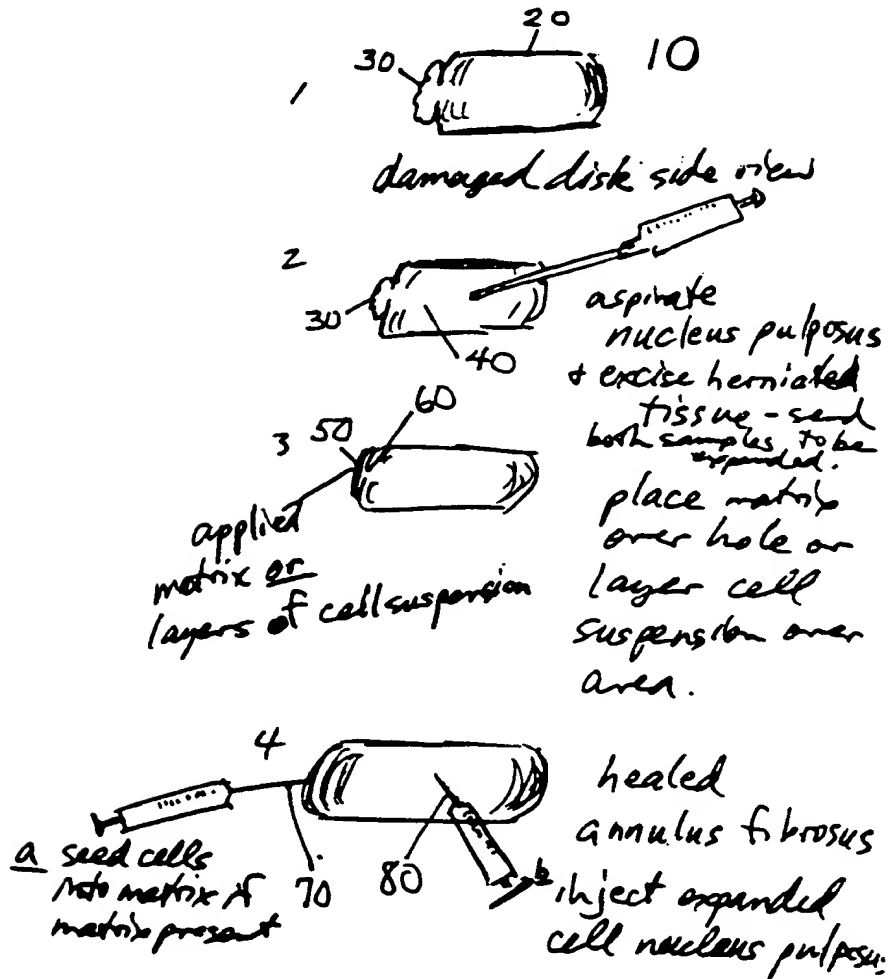 20
30
10
1
damaged disk side view
2
30
40
aspirate
nucleus pulposus
+ excise herniated
tissue - send
both samples to be
expanded.
3 50 60
applied
matrix or
layers of cell suspension
place matrix
over hole or
layer cell
suspension over
area.
4
a seed cells
into matrix if
matrix present
70
80
healed
annulus fibrosus
b
inject expanded
cell nucleus pulposus.